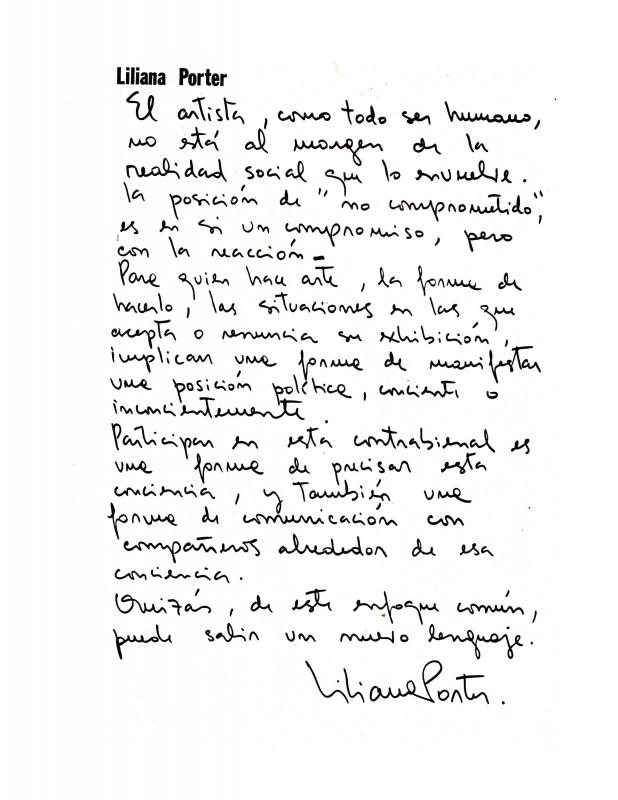 Liliana Porter
El artista, como todo ser humano,
no está al margen de la
realidad social que lo envuelve.
La posición de "no comprometido",
es en si un compromiso, pero
con la reacción –
Para quien hace arte, la forma de
hacerlo, las situaciones en las que
acepta o renuncia su exhibición,
implican una forma de manifestar
una posición política, conciente o
inconcientemente.
Participar en esta contrabienal es
una forma de precisar esta
conciencia, y también una
forma de comunicación con
compañeros alrededor de esa
conciencia.
Quizás, de este enfoque común,
puede salir un nuevo lenguaje.
Liliana Porter.